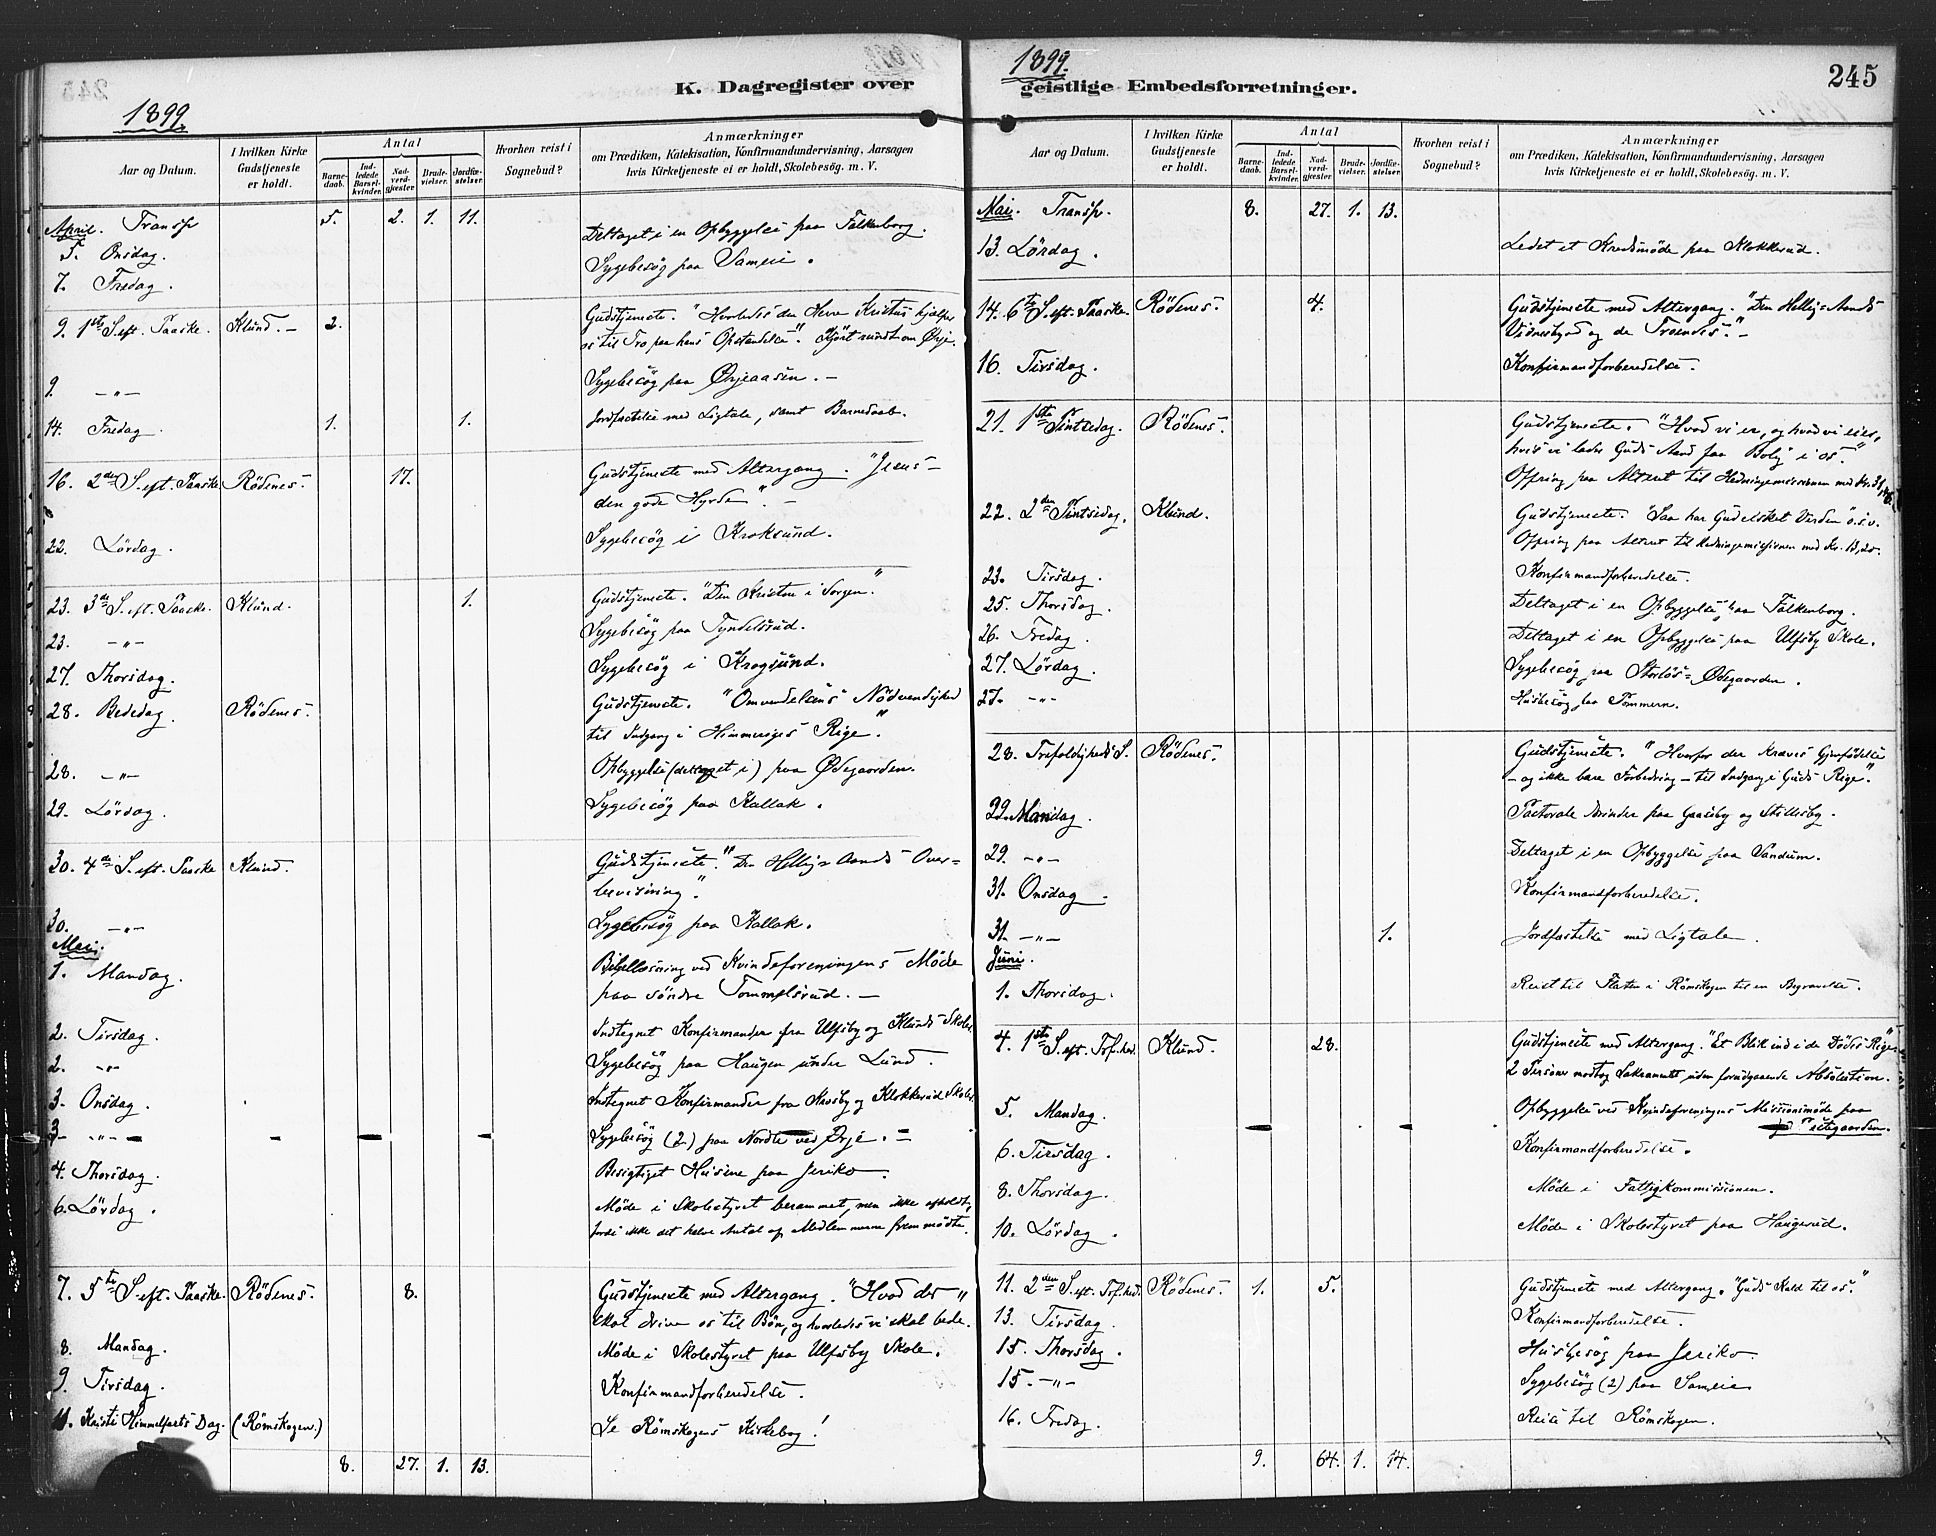 K. Dagregister over
1899.
Aar og Datum.
I hvilken Kirke Gudstjeneste er holdt.
Antal
Barne-daab.
Ind-ledede Barsel-kvinder.
Nad-verd-gjester
Brude-vielser.
Jordfæ-stelser.
Hvorhen reist i Sognebud?
Anmærkninger
om Prædiken, Katekisation, Konfirmandundervisning, Aarsagen
hvis Kirketjeneste ei er holdt, Skolebesög. m. V.
April. Transp 5. 2. 1. 11.
5. Onsdag. Deltaget i en Opbyggelse paa Falkenborg.
7. Fredag. Sygebesög paa Sameie.
9. 1ste S. eft. Paaske. Klund. 2. Gudstjeneste. "Hvorledes den Herre Kristus hjælper
os til Tro paa hans Opstandelse". Kjört rundt om Ørje.
9. -"- Sygebesög paa Ørjeaasen.
14. Fredag. 1. 1. Jordfæstelse med Ligtale, samt Barnedaab.
16. 2den S. eft. Paaske Rödenes. 17. Gudstjeneste med Altergang. "Jesus
den gode Hyrde".
22. Lördag. Sygebesög i Kroksund.
23. 3de S. eft. Paaske. Klund. 1. Gudstjeneste. "Den Kristne i Sorgen".
23. -"- Sygebesög paa Tyndelsrud.
27. Thorsdag. Sygebesög i Krogsund.
28. Bededag. Rödenes. Gudstjeneste. "Omvendelsens Nödvendighed
til Indgang i Himmeriges Rige".
28. -"- Opbyggelse (deltaget i) paa Ødegaarden.
29. Lördag. Sygebesög paa Kallak.
30. 4de S. eft. Paaske Klund. Gudstjeneste. "Den Hellig-Aands Over-
bevisning".
30. -"- Sygebesög paa Kallak.
Mai.
1. Mandag. Bibellæsning ved Kvindeforeningens Möde
paa söndre Tommelsrud.
2. Tirsdag. Indtegnet Konfirmander fra Ulfsby og Klunds Skoler.
2. -"- Sygebesög paa Haugen under Lund.
3. Onsdag. Indtegnet Konfirmander fra Havsby og Klokkerud Skoler.
3 -"- Sygebesög (2) paa Nordre ved Ørje.
4. Thorsdag. Besigtiget Husene paa Jeriko.
6. Lördag. Möde i Skolestyret berammet, men ikke afholdt,
fordi ikke det halve Antal af Medlemmerne fremmödte.
7. 5te S. eft. Paaske. Rödenes. 8. Gudstjeneste med Altergang. "Hvad der
skal drive os til Bön, og hvorledes vi skal bede."
8. Mandag. Möde i Skolestyret paa Ulfsby Skole.
9. Tirsdag. Konfirmandforberedelse.
11. Kristi Himmelfarts Dag. (Römskogen.) Se Römskogens Kirkebog!
8. 27. 1. 13.
1899.
geistlige Embedsforretninger.
245
Aar og Datum.
I hvilken Kirke Gudstjeneste er holdt.
Antal
Barne-daab.
Ind-ledede Barsel-kvinder.
Nad-verd-gjester.
Brude-vielser.
Jordfæ-stelser.
Hvorhen reist i Sognebud?
Anmærkninger
om Prædiken, Katekisation, Konfirmandundervisning, Aarsagen
hvis Kirketjeneste ei er holdt, Skolebesög. m. V.
Mai. Transp. 8. 27. 1. 13.
13. Lördag. Ledet et Kredsmöde paa Klokkerud.
14. 6te S. eft. Paaske. Rödenes. 4. Gudstjeneste med Altergang. "Den Hellig-Aands
Vidnesbyrd og de Troendes."
16. Tirsdag. Konfirmandforberedelse.
21. 1ste Pintsedag. Rödenes. Gudstjeneste. "Hvad vi er, og hvad vi eier,
hvis vi lader Guds Aand faa Bolig i os."
Offring paa Alteret til Hedningemissionen med Kr. 31,
22. 2den Pintsedag. Klund. Gudstjeneste. "Saa har Gud elsket Verden" o.s.v.
Offring paa Alteret til Hedningemissionen med Kr. 13,20.
23. Tirsdag. Konfirmandforberedelse.
25. Thorsdag. Deltaget i en Opbyggelse paa Falkenborg.
26. Fredag. Deltaget i en Opbyggelse paa Ulfsby Skole.
27. Lördag. Sygebesög paa Störlös-Ødegaarden.
27. -"- Husbesög paa Pommern.
28. Trefoldigheds S. Rödenes. Gudstjeneste. "Hvorfor der kræves Gjenfödelse
- og ikke bare Forbedring - til Indgang i Guds Rige".
29. Mandag. Pastorale Ærinder paa Gaasby og Stillesby.
29. -"- Deltaget i en Opbyggelse paa Sandum.
31. Onsdag. Konfirmandforberedelse.
31. -"- 1. Jordfæstelse med Ligtale.
Juni.
1. Thorsdag. Reist til Flaten i Römskogen til en Begravelse.
4. 1ste S. eft. Tref.hed. Klund. 28. Gudstjeneste med Altergang. "Et Blik ind i de Dödes Rige".
2 Personer modtog Sakramentet uden forudgaaende Absolution.
5. Mandag. Opbyggelse ved Kvindeforeningens Missionsmöde paa
Prestegaarden.
6. Tirsdag. Konfirmandforberedelse.
8. Thorsdag. Möde i Fattigkommissionen.
10. Lördag. Möde i Skolestyret paa Haugerud.
11. 2den S. eft. Tref.hed. Rödenes. 1. 5. Gudstjeneste med Altergang. "Guds Kald til os."
13. Tirsdag. Konfirmandforberedelse.
15. Thorsdag. Husbesög paa Jeriko.
15. -"- Sygebesög (2) paa Sameie
16. Fredag. Reise til Römskogen.
9. 64. 1. 14.